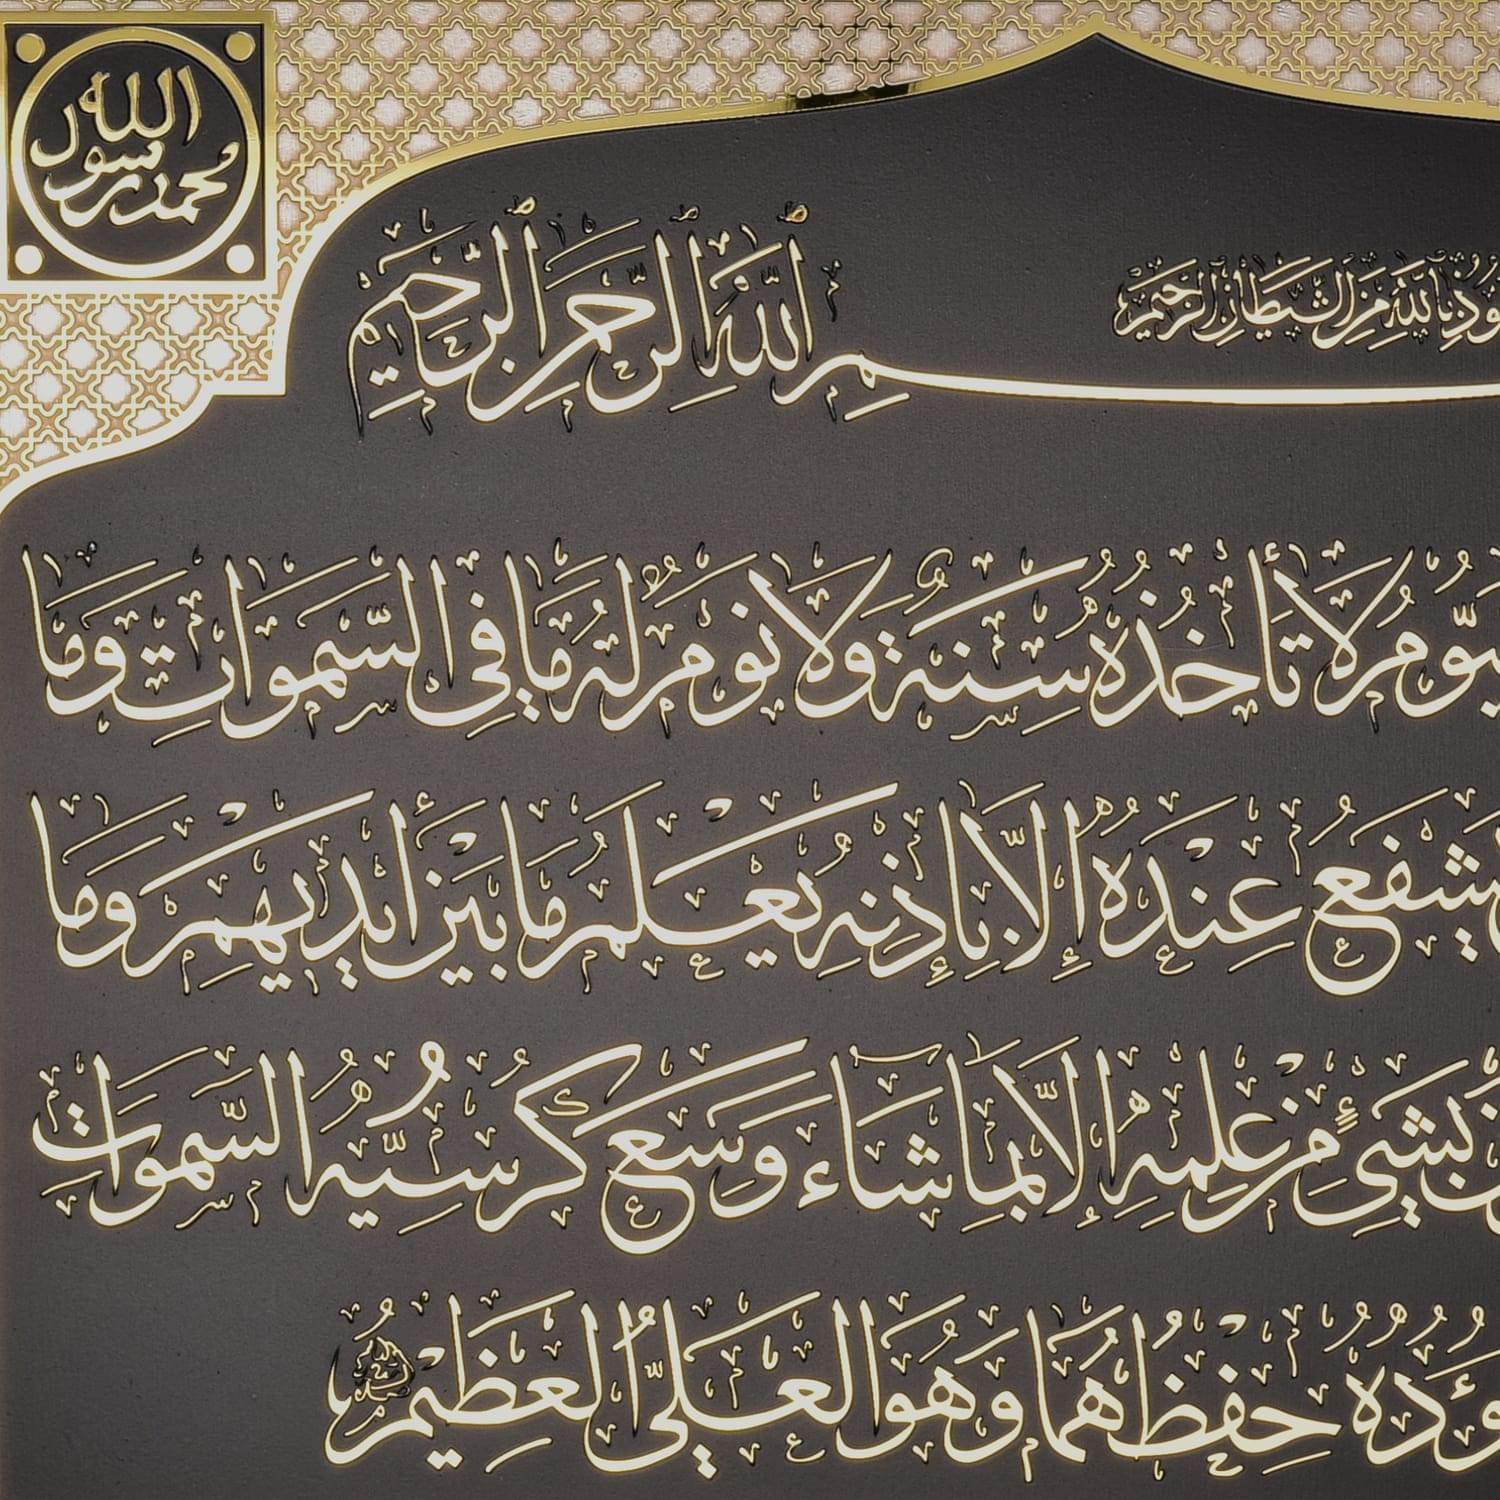 الله
رسول
محمد
بالله من الشيطان الرجيم
بسم الله الرحمن الرحيم
لا تأخذه سنة ولا نوم له ما في السموات وما
يشفع عنده إلا بإذنه يعلم ما بين أيديهم وما
بشيء من علمه إلا بما شاء وسع كرسيه السموات
حفظهما وهو العلي العظيم